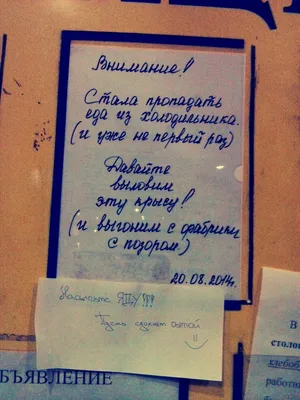 Внимание!
Стала пропадать
еда из холодильника.
(и уже не первый раз)
Давайте
выловим
эту крысу!
(и выгоним с фабрики
с позором.)
20.08.2014г.
Насыпьте ЯДУ!!!
Пусть сдохнет сытой
БЪЯВЛЕНИЕ
В
столо
хлебоб